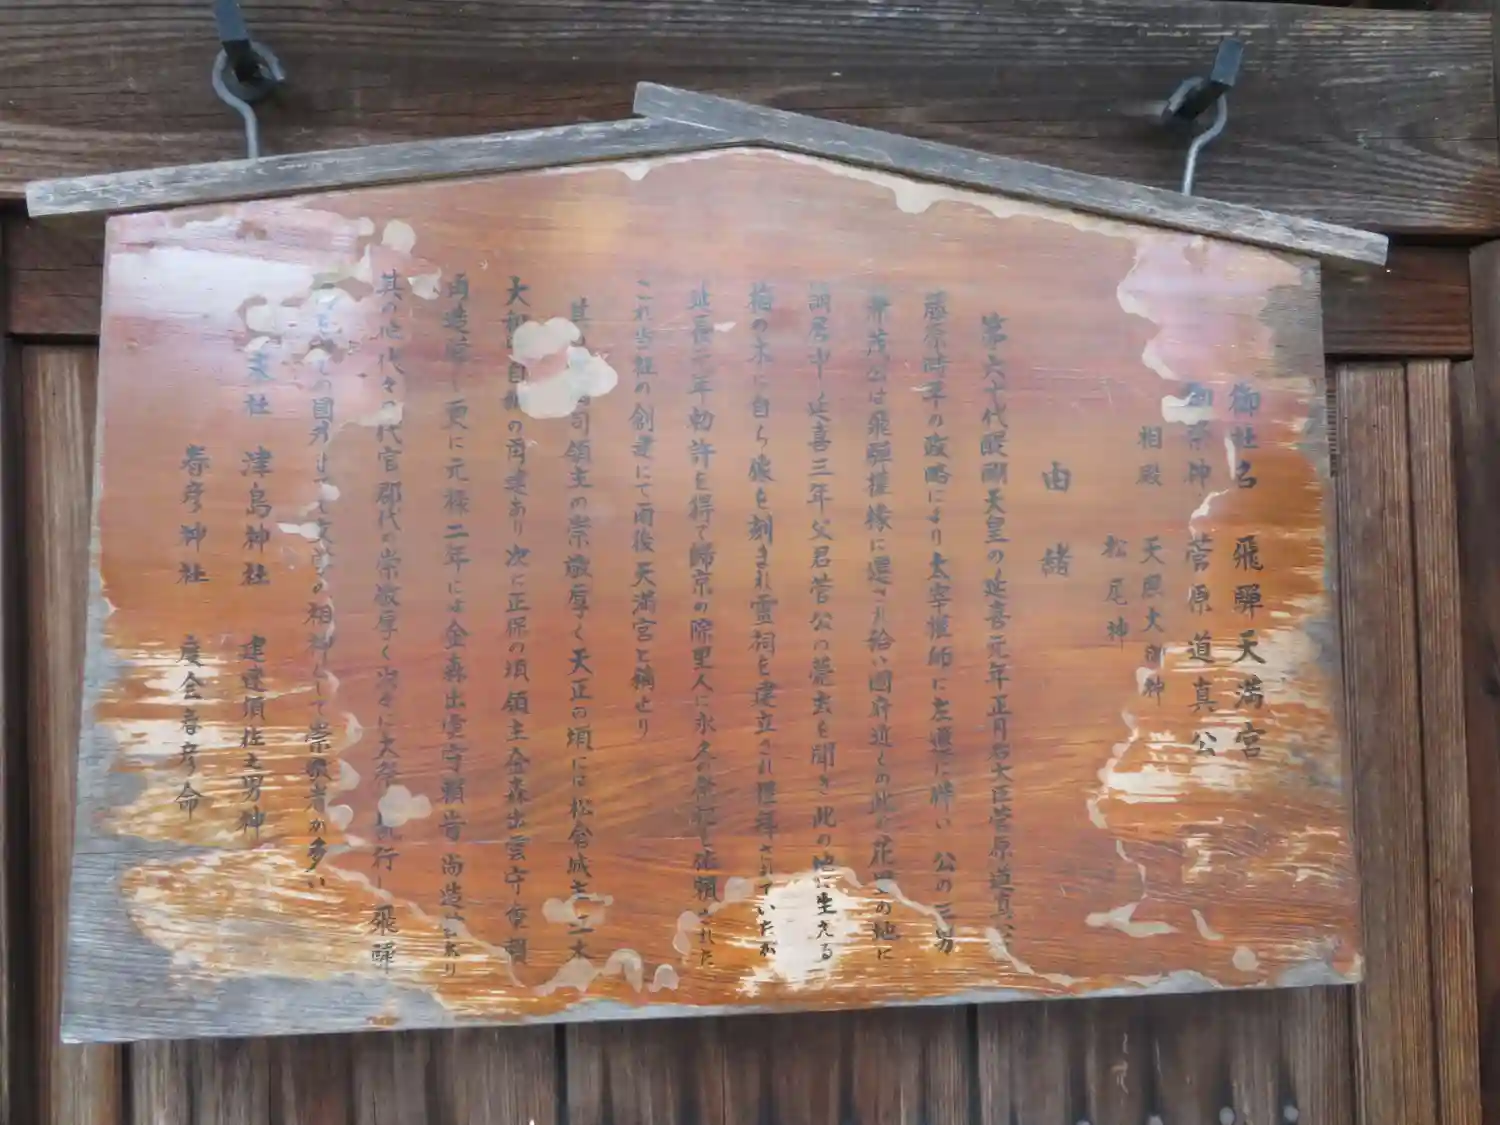 御社名 飛騨天満宮
御祭神 菅原道真公
相殿 天照大御神
松尾神
由諸
第六十代醍醐天皇の延喜元年正月右大臣菅原道真公
藤原時平の政略により太宰権師に左遷に時い 公の三男
兼茂公は飛騨権掾に遷され給い国府近くの此の花里の地に
謫居中し延喜三年父君菅公の薨去を聞き此の地に生える
梅の木に自ら像を刻まれ霊祠を建立され礼拝されていたが
延長元年勅許を得て帰京の際里人に永久の祭祀を依頼された
これ当社の創建にて而後天満宮と称せり
其 国司領主の崇敬厚く天正の頃には松倉城主三木
大和 自 の再建あり次に正保の頃領主金森出雲守重頼
再造営し更に元禄二年には金森出雲守頼旹尚造営 あり
其の他代々の代官郡代の崇敬厚く 々に大祭 執行し飛騨
の国 文学の祖神として崇敬者が多い
末社 津島神社 建速須佐之男神
春彦神社 度会春彦命